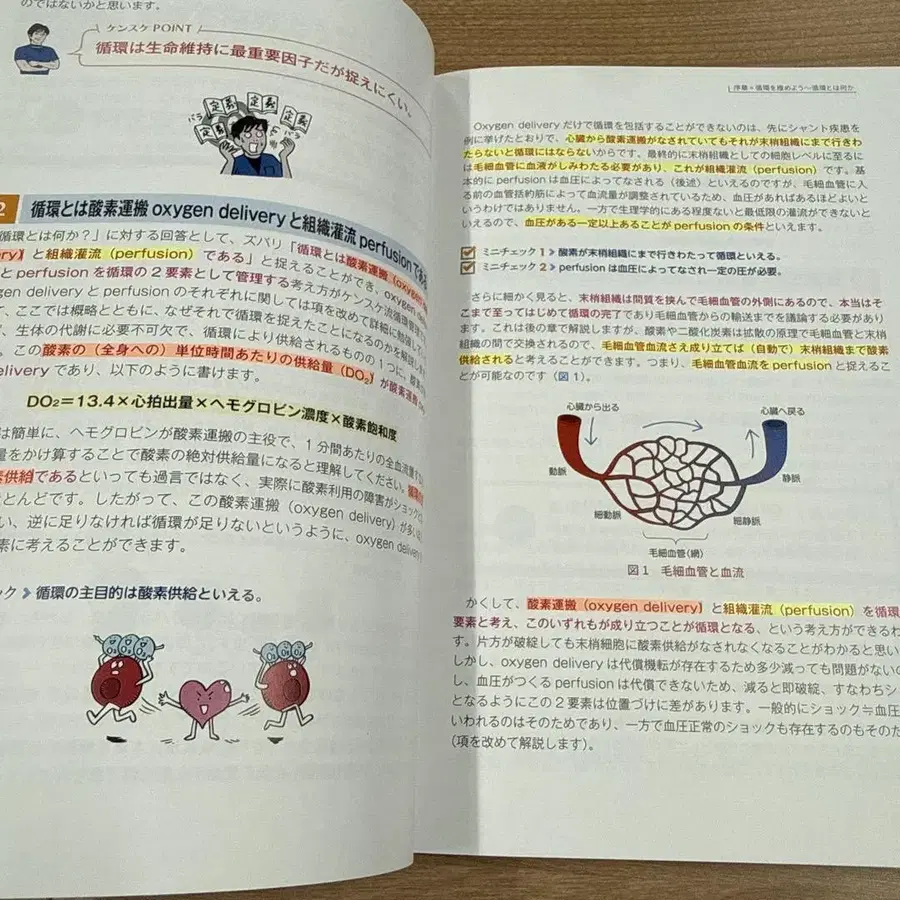 のではないかと思います。
ケンスケ POINT
循環は生命維持に最重要因子だが捉えにくい。
定義
定義
定義
定義
定義
バラ
バラ
2 循環とは酸素運搬 oxygen delivery と組織灌流 perfusion である
循環とは何か？」に対する回答として、ズバリ「循環とは酸素運搬（oxygen
ery）と組織灌流（perfusion）である」と捉えることができ、oxygen
と perfusion を循環の 2 要素として管理する考え方がケンスケ流循環管理
gen delivery と perfusion のそれぞれに関しては項を改めて詳細に勉強して
て、ここでは概略とともに、なぜそれで循環を捉えたことになるのかを解説しま
、生体の代謝に必要不可欠で、循環により供給されるものの 1 つに、酸素
。この酸素の（全身への）単位時間あたりの供給量（DO₂）が酸素運搬
delivery であり、以下のように書けます。
DO₂＝13.4×心拍出量×ヘモグロビン濃度×酸素飽和度
は簡単に、ヘモグロビンが酸素運搬の主役で、1 分間あたりの全血流量
量をかけ算することで酸素の絶対供給量になると理解してください。循環の
素供給であるといっても過言ではなく、実際に酸素利用の障害がショック
とんどです。したがって、この酸素運搬（oxygen delivery）が多い
い、逆に足りなければ循環が足りないというように、oxygen delivery
素に考えることができます。
ック 循環の主目的は酸素供給といえる。
O₂ O₂ O₂
O₂ O₂ O₂
序章●循環を極めよう〜循環とは何か
Oxygen delivery だけで循環を包括することができないのは、先にシャント疾患を
例に挙げたとおりで、心臓から酸素運搬がなされていてもそれが末梢組織にまで行きわ
たらないと循環にはならないからです。最終的に末梢組織としての細胞レベルに至るに
は毛細血管に血液がしみわたる必要があり、これが組織灌流（perfusion）です。基
本的に perfusion は血圧によってなされる（後述）といえるのですが、毛細血管に入
る前の血管括約筋によって血流量が調整されているため、血圧があればあるほどよいと
いうわけではありません。一方で生理学的にある程度ないと最低限の灌流ができないと
いえるので、血圧がある一定以上あることが perfusion の条件といえます。
ミニチェック 1 酸素が末梢組織にまで行きわたって循環といえる。
ミニチェック 2 perfusion は血圧によってなされ一定の圧が必要。
さらに細かく見ると、末梢組織は間質を挟んで毛細血管の外側にあるので、本当はそ
こまで至ってはじめて循環の完了であり毛細血管からの輸送までを議論する必要があり
ます。これは後の章で解説しますが、酸素や二酸化炭素は拡散の原理で毛細血管と末梢
組織の間で交換されるので、毛細血管血流さえ成り立てば（自動で）末梢組織まで酸素
供給されると考えることができます。つまり、毛細血管血流を perfusion と捉えるこ
とが可能なのです（図 1）。
心臓から出る
心臓へ戻る
動脈
静脈
細動脈
細静脈
毛細血管（網）
図 1 毛細血管と血流
かくして、酸素運搬（oxygen delivery）と組織灌流（perfusion）を循環
要素と考え、このいずれもが成り立つことが循環となる、という考え方ができるわ
す。片方が破綻しても末梢細胞に酸素供給がなされなくなることがわかると思い
しかし、oxygen delivery は代償機転が存在するため多少減っても問題がない
し、血圧がつくる perfusion は代償できないため、減ると即破綻、すなわちシ
となるようにこの 2 要素は位置づけに差があります。一般的にショック≒血圧
いわれるのはそのためであり、一方で血圧正常のショックも存在するのもそのた
（項を改めて解説します）。